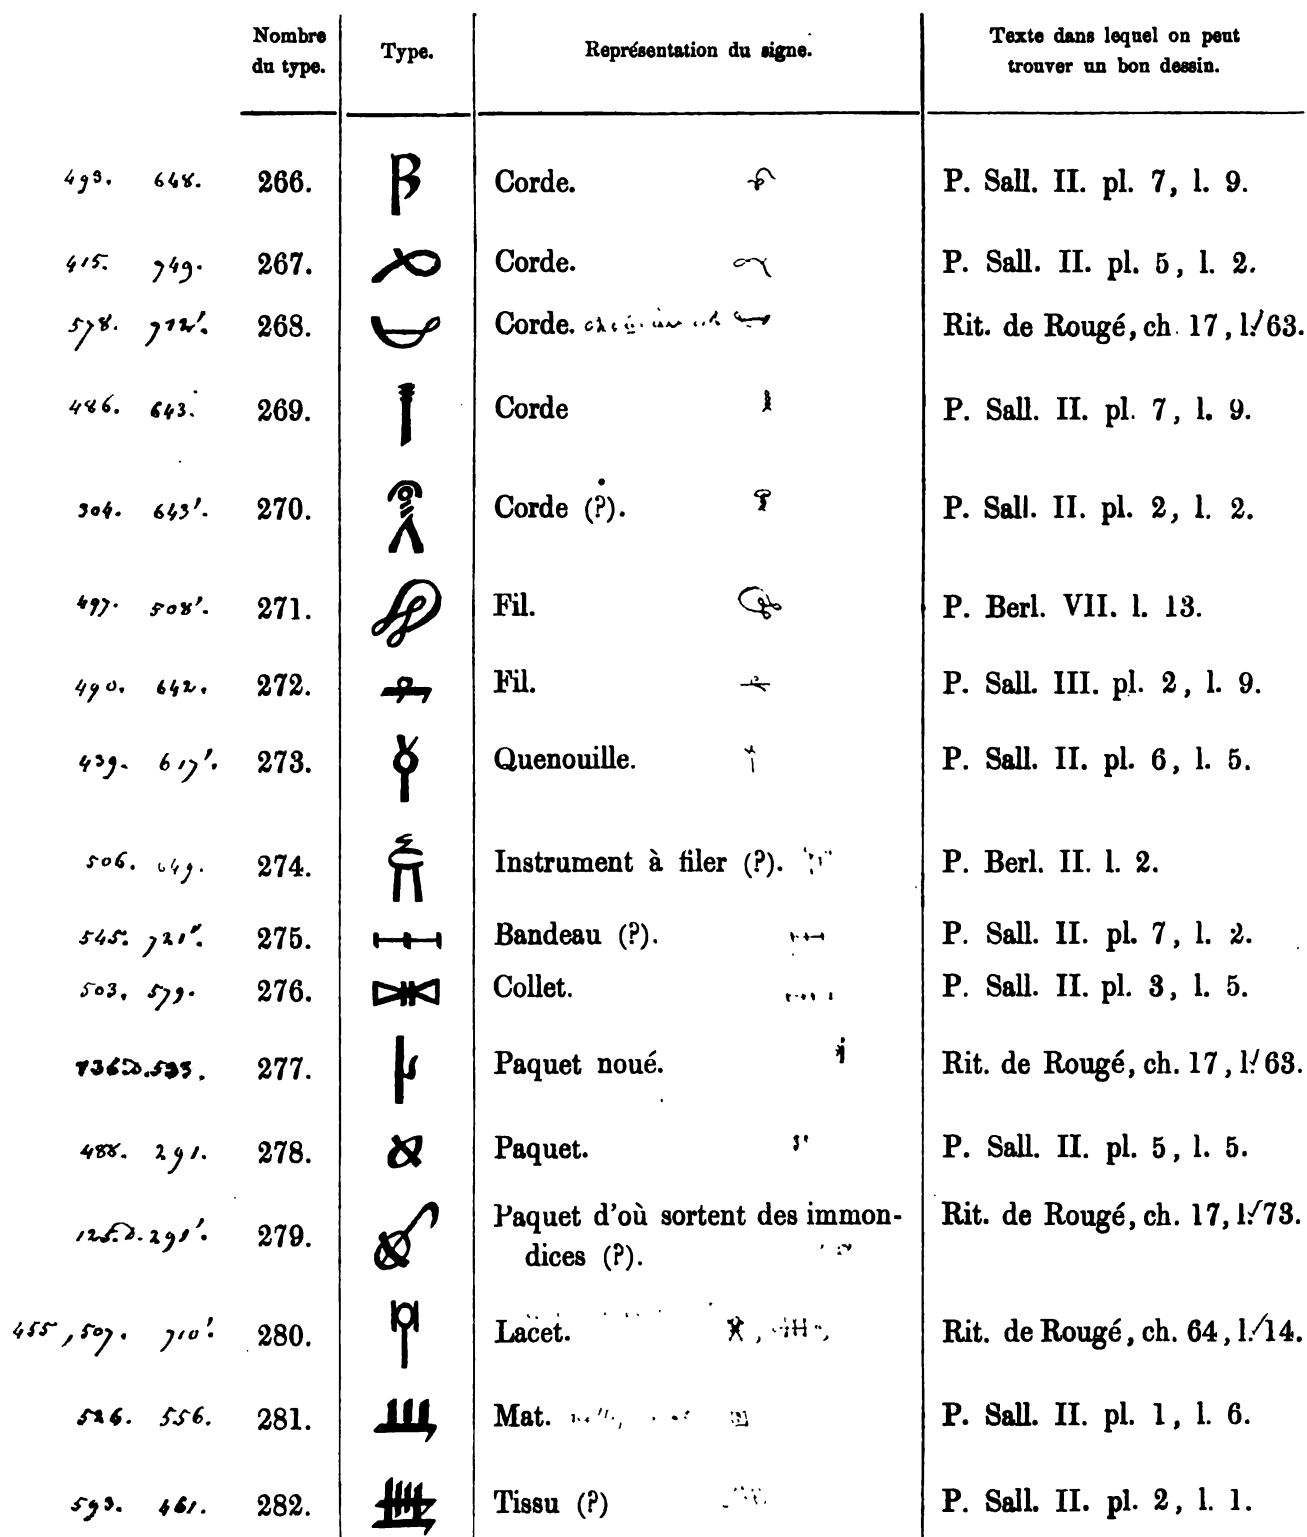 Nombre du type. Type. Représentation du signe. Texte dans lequel on peut trouver un bon dessin.
493. 648. 266. Corde. P. Sall. II. pl. 7, l. 9.
415. 749. 267. Corde. P. Sall. II. pl. 5, l. 2.
578. 712'. 268. Corde. Rit. de Rougé, ch. 17, l. 63.
486. 643. 269. Corde P. Sall. II. pl. 7, l. 9.
304. 643'. 270. Corde (?). P. Sall. II. pl. 2, l. 2.
497. 508'. 271. Fil. P. Berl. VII. l. 13.
490. 642. 272. Fil. P. Sall. III. pl. 2, l. 9.
439. 617'. 273. Quenouille. P. Sall. II. pl. 6, l. 5.
506. 649. 274. Instrument à filer (?). P. Berl. II. l. 2.
545. 721". 275. Bandeau (?). P. Sall. II. pl. 7, l. 2.
503. 579. 276. Collet. P. Sall. II. pl. 3, l. 5.
533. 277. Paquet noué. Rit. de Rougé, ch. 17, l. 63.
488. 291. 278. Paquet. P. Sall. II. pl. 5, l. 5.
291'. 279. Paquet d'où sortent des immon- Rit. de Rougé, ch. 17, l. 73.
dices (?).
455, 507. 710'. 280. Lacet. Rit. de Rougé, ch. 64, l. 14.
526. 556. 281. Mat. P. Sall. II. pl. 1, l. 6.
593. 461. 282. Tissu (?) P. Sall. II. pl. 2, l. 1.